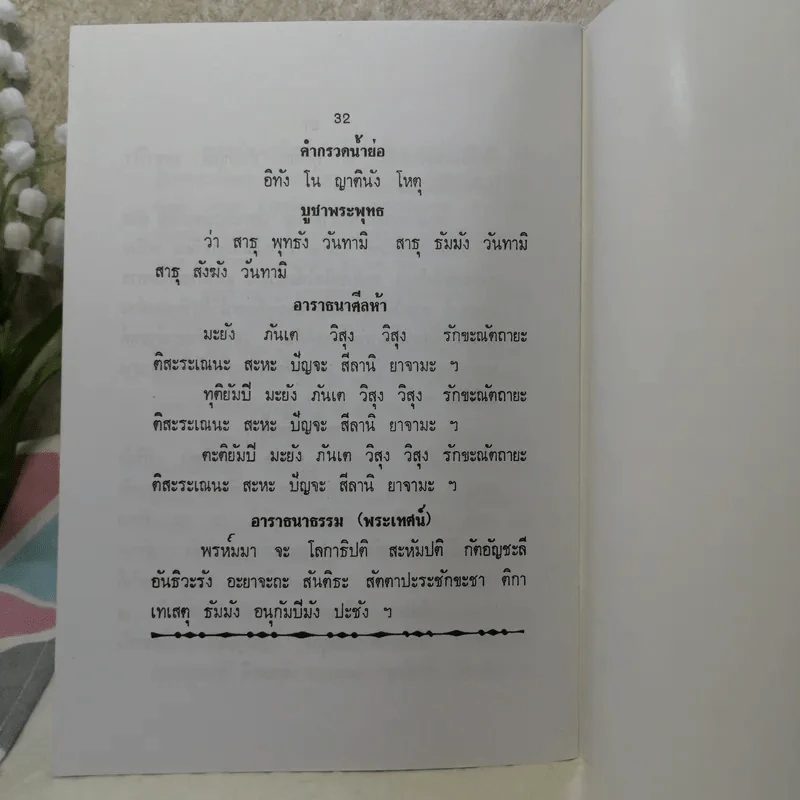 32
คำกรวดน้ำย่อ
อิทัง โน ญาตินัง โหตุ
บูชาพระพุทธ
ว่า สาธุ พุทธัง วันทามิ สาธุ ธัมมัง วันทามิ
สาธุ สังฆัง วันทามิ
อาราธนาศีลห้า
มะยัง ภันเต วิสุง วิสุง รักขะณัตถายะ
ติสะระเณนะ สะหะ ปัญจะ สีลานิ ยาจามะ ฯ
ทุติยัมปี มะยัง ภันเต วิสุง วิสุง รักขะณัตถายะ
ติสะระเณนะ สะหะ ปัญจะ สีลานิ ยาจามะ ฯ
ตะติยัมปี มะยัง ภันเต วิสุง วิสุง รักขะณัตถายะ
ติสะระเณนะ สะหะ ปัญจะ สีลานิ ยาจามะ ฯ
อาราธนาธรรม (พระเทศน์)
พรหัมมา จะ โลกาธิปติ สะหัมปติ กัตอัญชะลี
อันธิวะรัง อะยาจะถะ สันติธะ สัตตาปะระชักขะชา ติกา
เทเสตุ ธัมมัง อนุกัมปีมัง ปะชัง ฯ